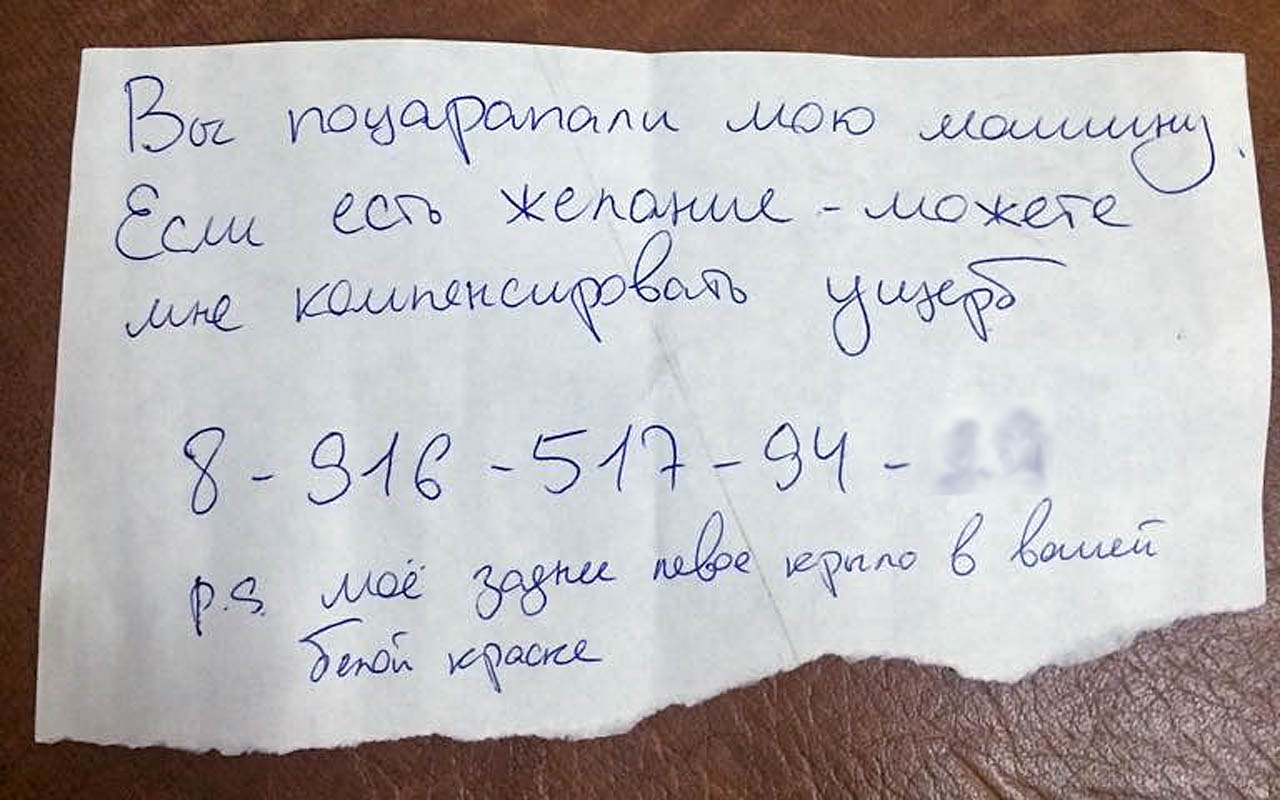 Вы поцарапали мою машину.
Если есть желание - можете
мне компенсировать ущерб
8 - 916 - 517 - 94 -
p.s. моё заднее левое крыло в вашей
белой краске